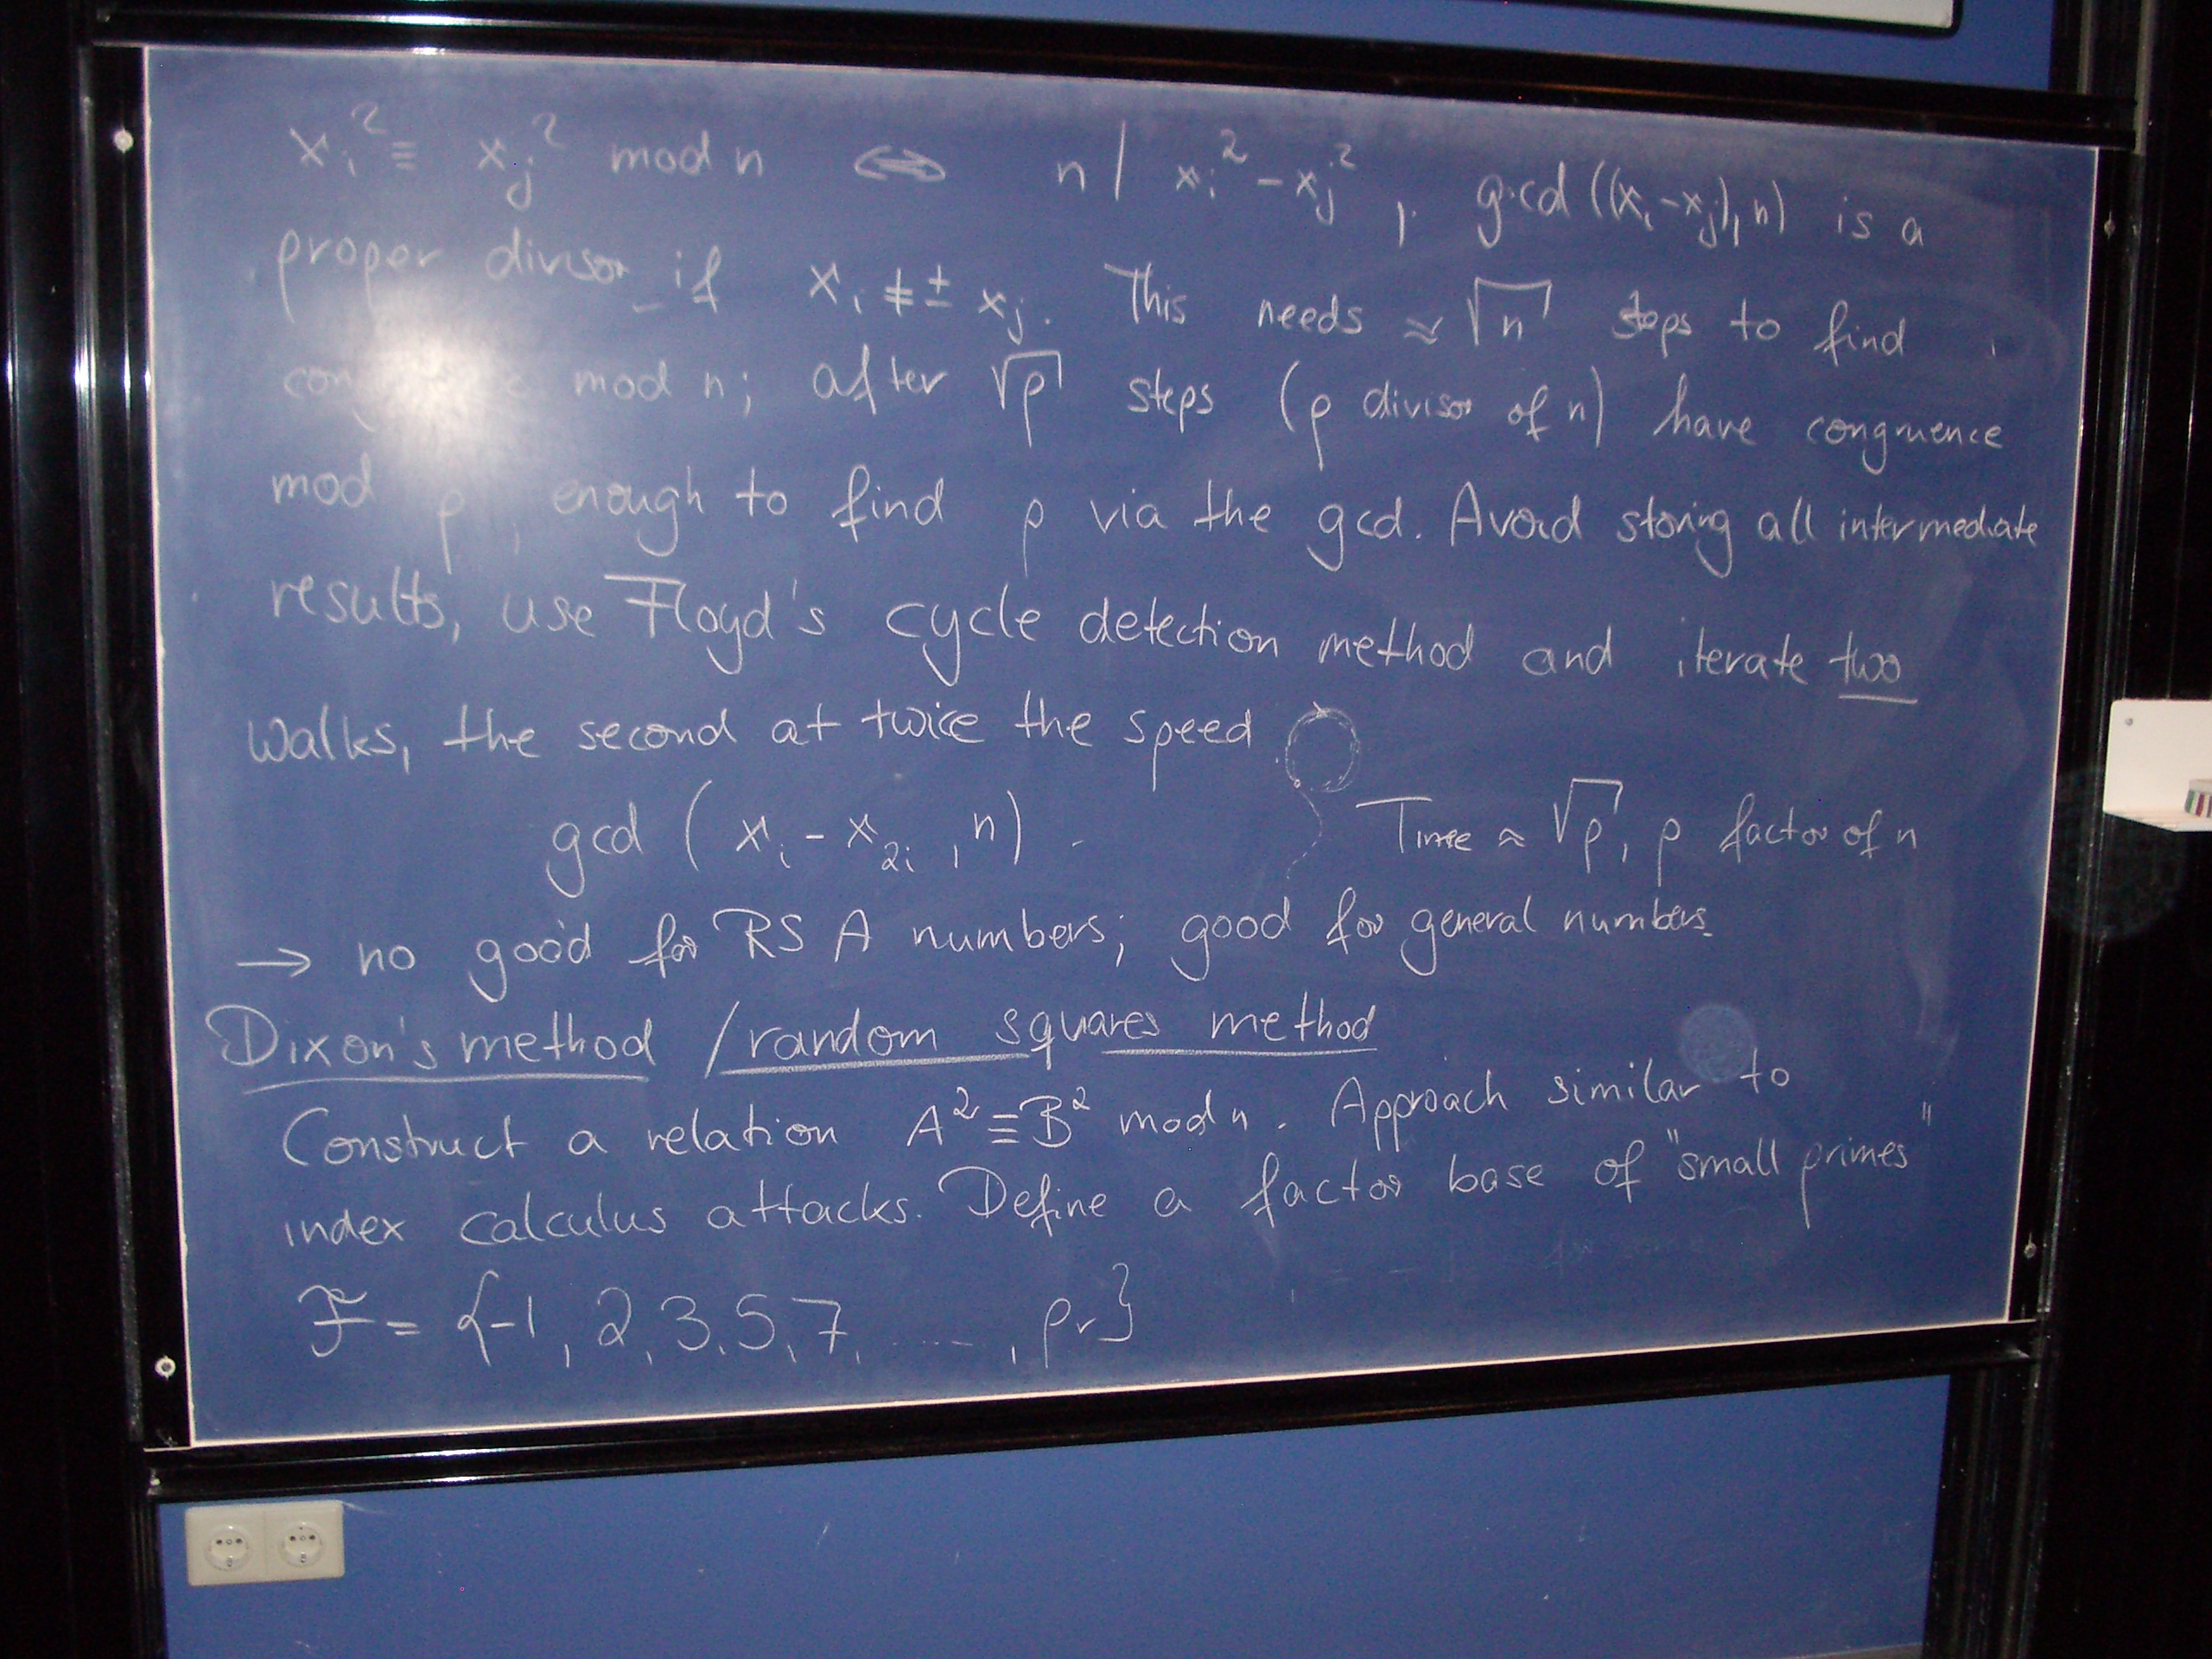 xᵢ² ≡ xⱼ² mod n ⇔ n | xᵢ² - xⱼ², gcd((xᵢ-xⱼ), n) is a
proper divisor if xᵢ ≠ ± xⱼ. This needs ≈ √n steps to find
mod n; after √p steps (p divisor of n) have congruence
mod p, enough to find p via the gcd. Avoid storing all intermediate
results, use Floyd's cycle detection method and iterate two
walks, the second at twice the speed
gcd (xᵢ - x₂ᵢ, n). Time ≈ √p, p factor of n
→ no good for RSA numbers; good for general numbers.
Dixon's method / random squares method
Construct a relation A² ≡ B² mod n. Approach similar to
index calculus attacks. Define a factor base of "small primes"
F = {-1, 2, 3, 5, 7, ....., pᵣ}